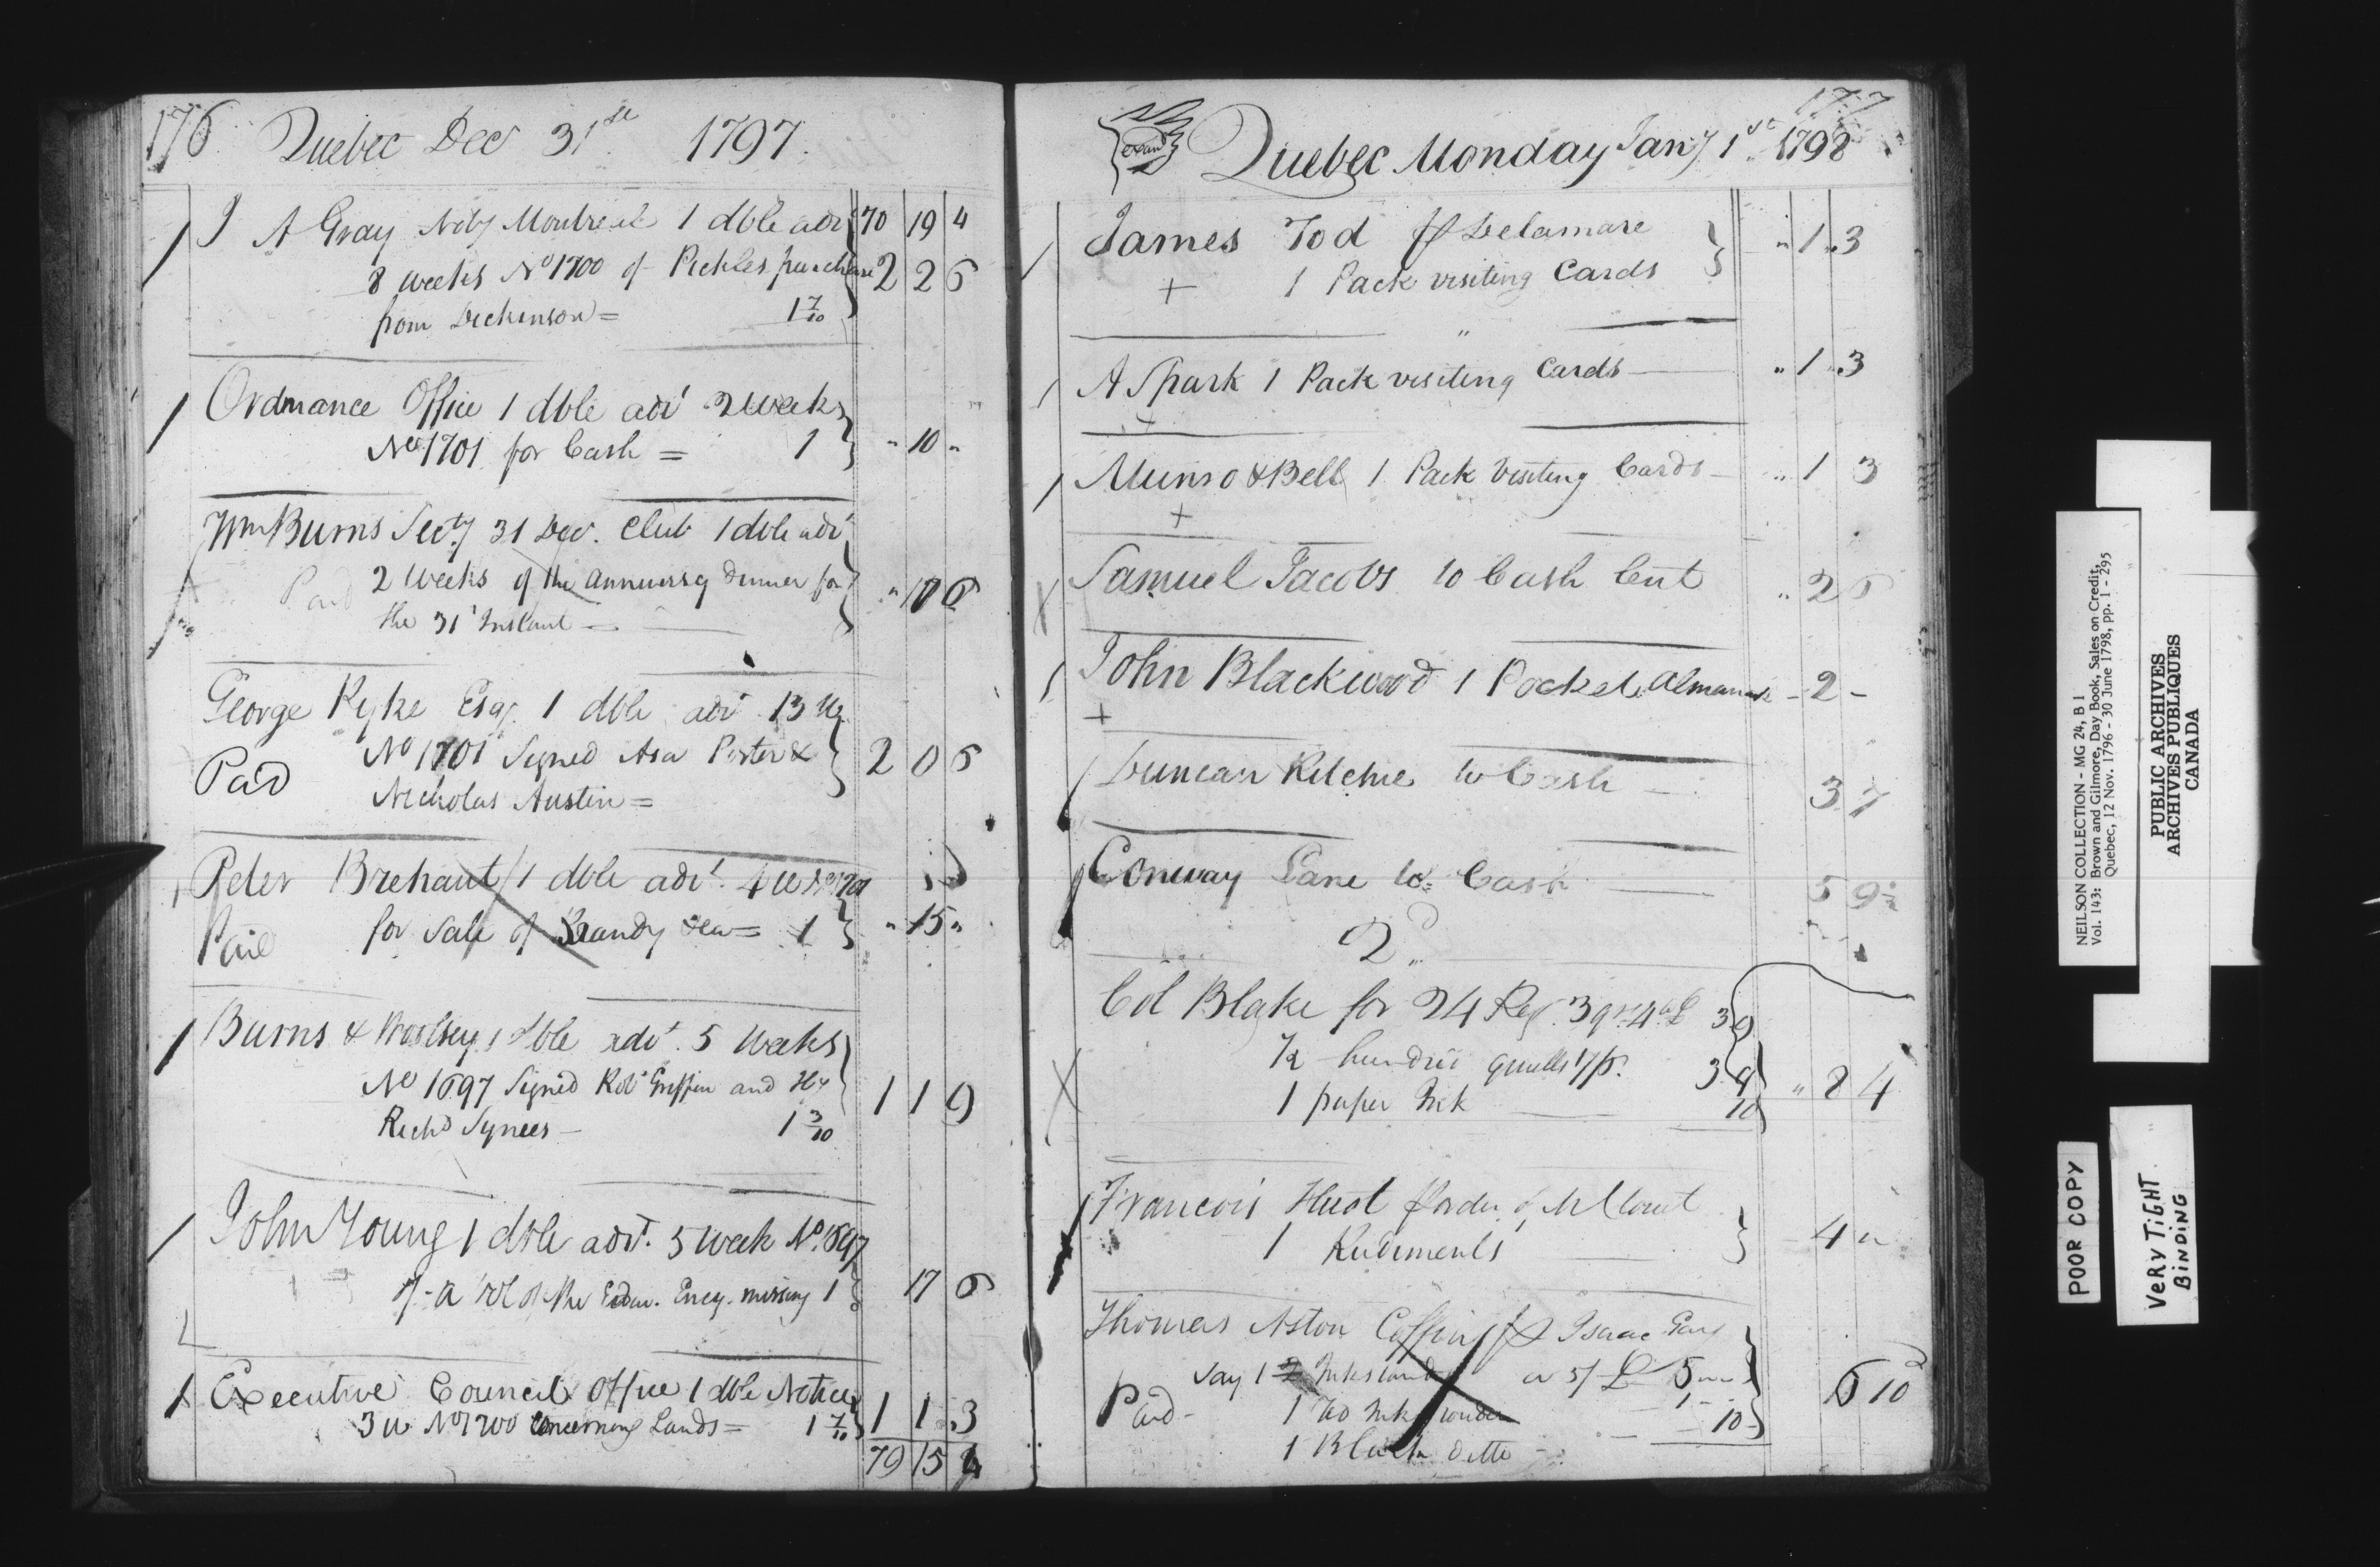 176 Quebec Dec 31st 1797.
J A Gray Noty Montreal 1 dble adv 70 19 4
8 weeks No 1700 of Pickles purchase 2 2 6
from Dickenson = 1 7/10
Ordnance Office 1 dble advt 2 weeks
No 1701 for Cash = 1 " 10 "
Wm Burns Secty 31 Dec. Club 1 dble advt
Paid 2 weeks of the anniversy dinner for " 10 6
the 31t Instant
George Pyke Esqr. 1 dble advt 13 W
Paid No 1701 Signed Asa Porter & 2 0 6
Nicholas Austin =
Peter Brehaut 1 dble advt. 4 W No 1701
Paid for Sale of Brandy &ca = 1 " 15 "
Burns & Woolsey 1 dble advt. 5 Weeks
No 1697 Signed Robt Griffin and Hy 1 1 9
Richd Symes 1 3/10
John Young 1 dble advt. 5 week No. 1697
of a vol of the Edin. Ency. missing 1 17 6
Executive Council Office 1 dble Notice
3 W No 1700 Concerning Lands = 1 7/10 1 1 3
79 15 4
177
Quebec Monday Jany 1st 1798
James Tod Delamare
+ 1 Pack visiting Cards " 1 " 3
"
A Spark 1 Pack visiting Cards " 1 " 3
+
Munro & Bell 1 Pack Visiting Cards " 1 3
+
Samuel Jacobs to Cash Cut " 2 6
John Blackwood 1 Pocket Almanack - 2 -
+
Duncan Ritchie to Cash 3 7
Conway Lane to Cash 5 9 1/2
2d
Col Blake for 24 Reg. 3 qrs 4to 3 9
1/2 hundred quills 7/6 3 9 " 8 4
1 paper Ink 10
Francois Huot order of
1 Rudiments 4 "
Thomas Aston Coffin Isaac
Say 1 Inkstand a 5/ 5
Paid 1 Ink Powder 1 - 6 10
1 Black Ditto 10
NEILSON COLLECTION - MG 24, B 1
Vol. 143: Brown and Gilmore, Day Book, Sales on Credit,
Quebec, 12 Nov. 1796 - 30 June 1798, pp. 1 - 295
PUBLIC ARCHIVES
ARCHIVES PUBLIQUES
CANADA
POOR COPY
VERY TIGHT
BINDING